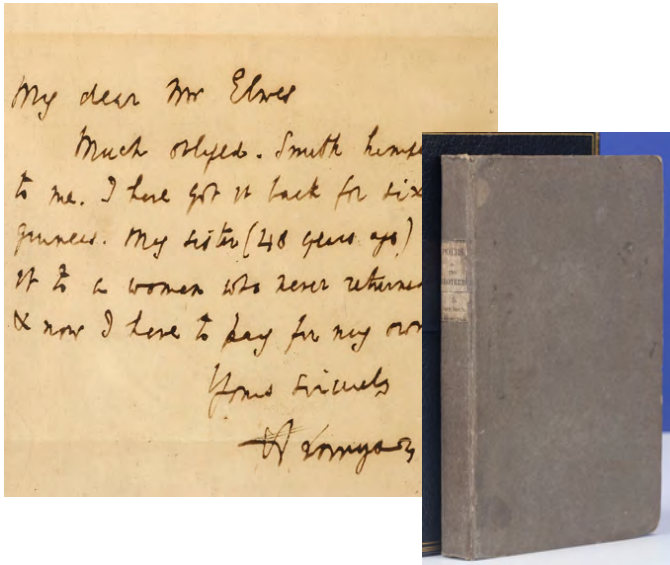 My dear Mr Elwes
Much obliged. Smith
to me. I have got it back for six
guineas. My sister (48 years ago)
it to a woman who never returned
& now I have to pay for my own
Yours sincerely
A Tennyson
POEMS
BY
TWO
BROTHERS